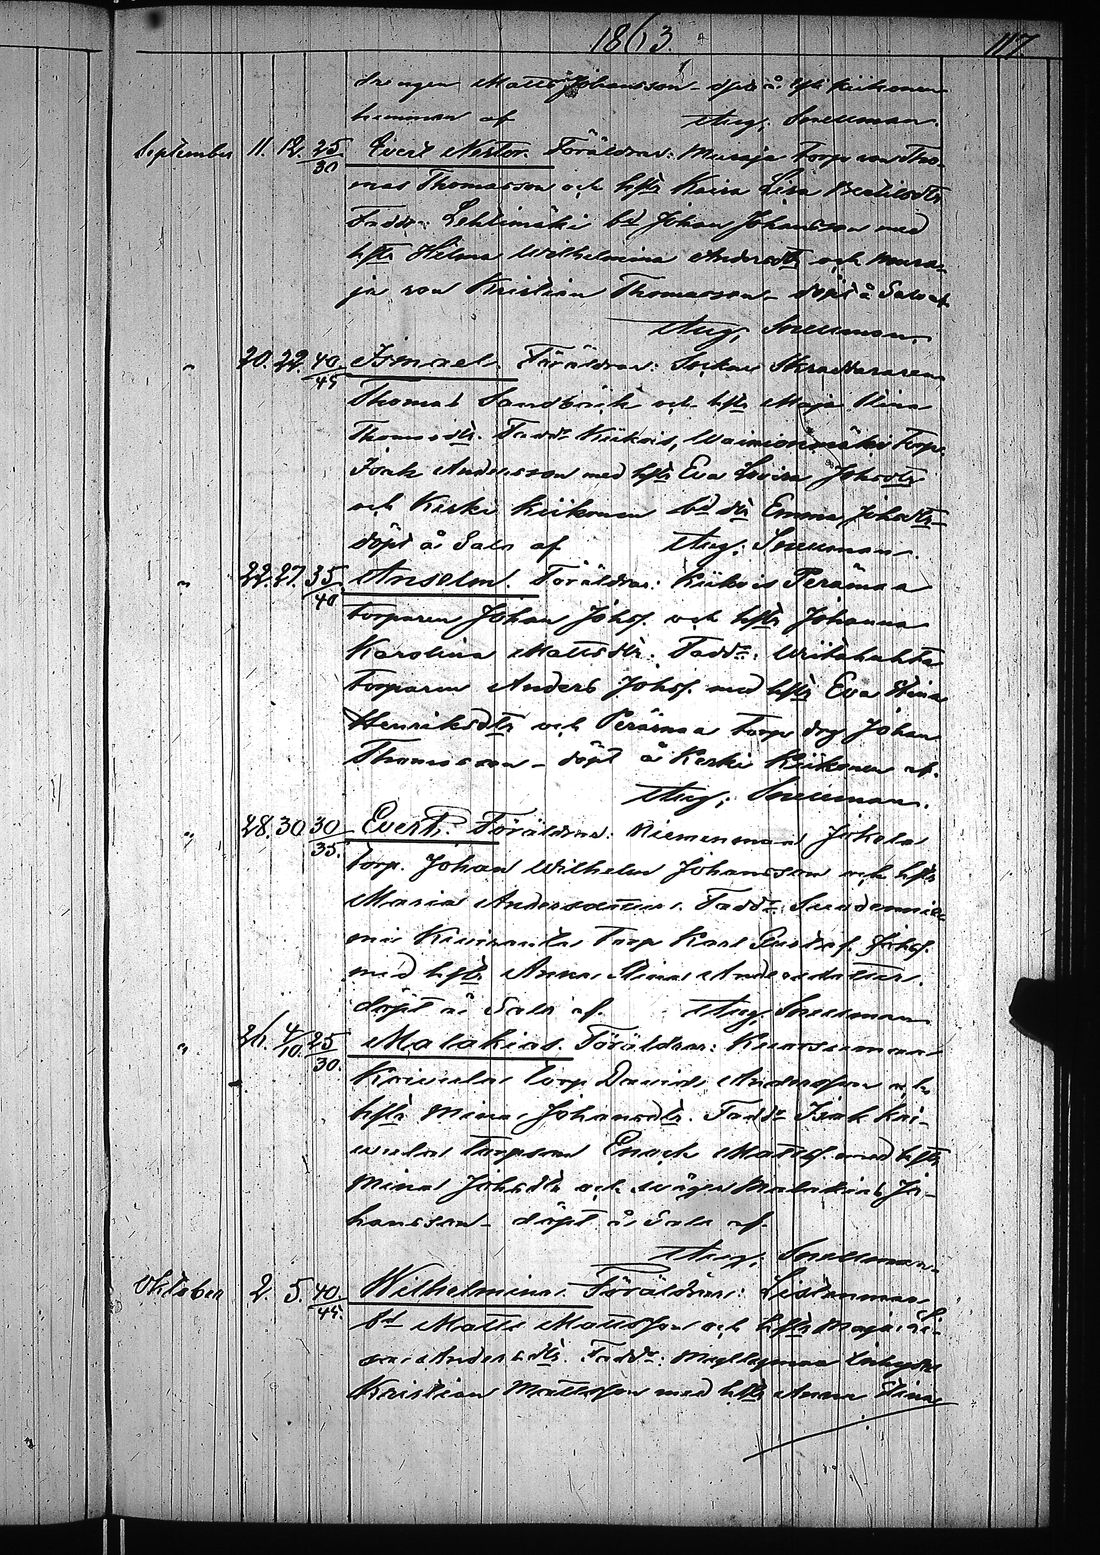 1863.
117
drengen Matts Johansson döpt å Kiikonen
hemman af Aug. Snellman.
September 11. 12. 25/30 Evert Nestor. Föräldrar: Muraja torp. son Tho-
mas Thomasson och hstr Kaisa Lisa
Fadd: Lehtimäki bd Johan Johansson med
hstr Hilma Wilhelmina Andersdtr och Mura-
ja son Kristian Thomasson döpt å Salo af
Aug. Snellman.
" 20. 22. 40/45 Ismael. Föräldrar: Socken Skraddaren
Thomas Sandbäck och hstr Maja Stina
Thomasdtr. Fadd: Kiikois, Wainionmäki Torp.
Isak Andersson med hstr Eva Lovisa Johsdtr
och Keski Kiikonen bd dtr Emma Johsdtr
döpt å Salo af Aug. Snellman.
" 22. 27. 35/40 Anselm. Föräldrar: Kiikois Perämaa
torparen Johan Johsf. och hstr Johanna
Karolina Mattsdtr. Fadd:
torparen Anders Johsf. med hstr Eva Stina
Henriksdtr och Perämaa torp. drg Johan
Thomasson döpt å Keski Kiikonen af
Aug. Snellman.
" 28. 30 30/35. Evert. Föräldrar: Niemenmaa Jokela
torp. Johan Wilhelm Johansson och hstr
Maria Andersdotter. Fadd: Suodennie-
mi torp Karl Gustaf Johsf.
med hstr Anna Stina Andersdotter.
döpt å Salo af Aug. Snellman
" 26. 4/10. 25/30. Malakias. Föräldrar:
Koivula torp David Andersson och
hstr Mina Johansdtr. Fadd: Isak Koi-
vula torpson Enoch Mattsf. med hstr
Mina Johsdtr och svåger Malakias Jo-
hansson döpt å Salo af
Aug. Snellman.
Oktober 2. 5. 40/45. Wilhelmina. Föräldrar:
bd Matts Mattsson och hstr Maja Li-
sa Andersdtr. Fadd: Myllymaa
Kristian Mattsson med hstr Anna Stina